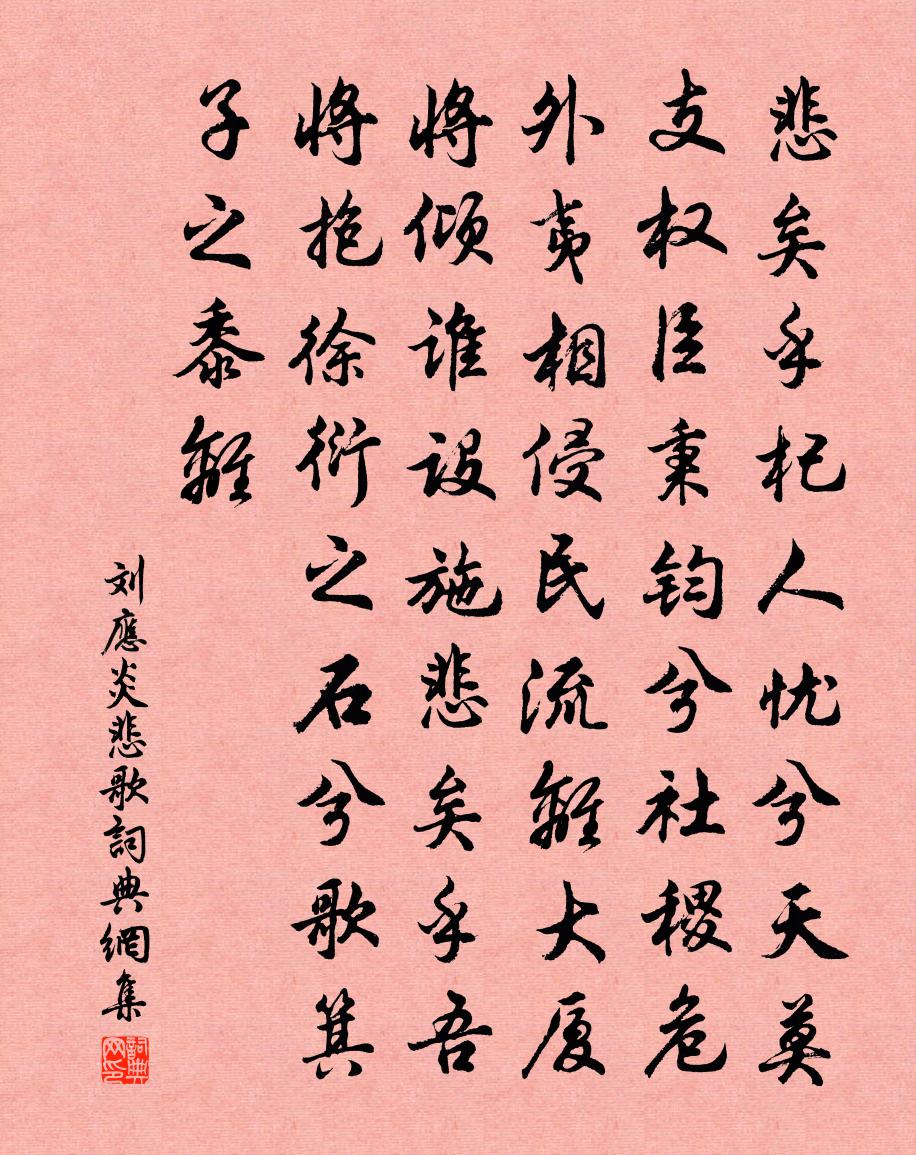 悲矣乎杞人忧兮天莫
支权臣秉钧兮社稷危
外夷相侵民流離大厦
将倾谁设施悲矣乎吾
将抱徐衍之石兮歌箕
子之黍離
刘應炎悲歌詞典網集
詞典
网印